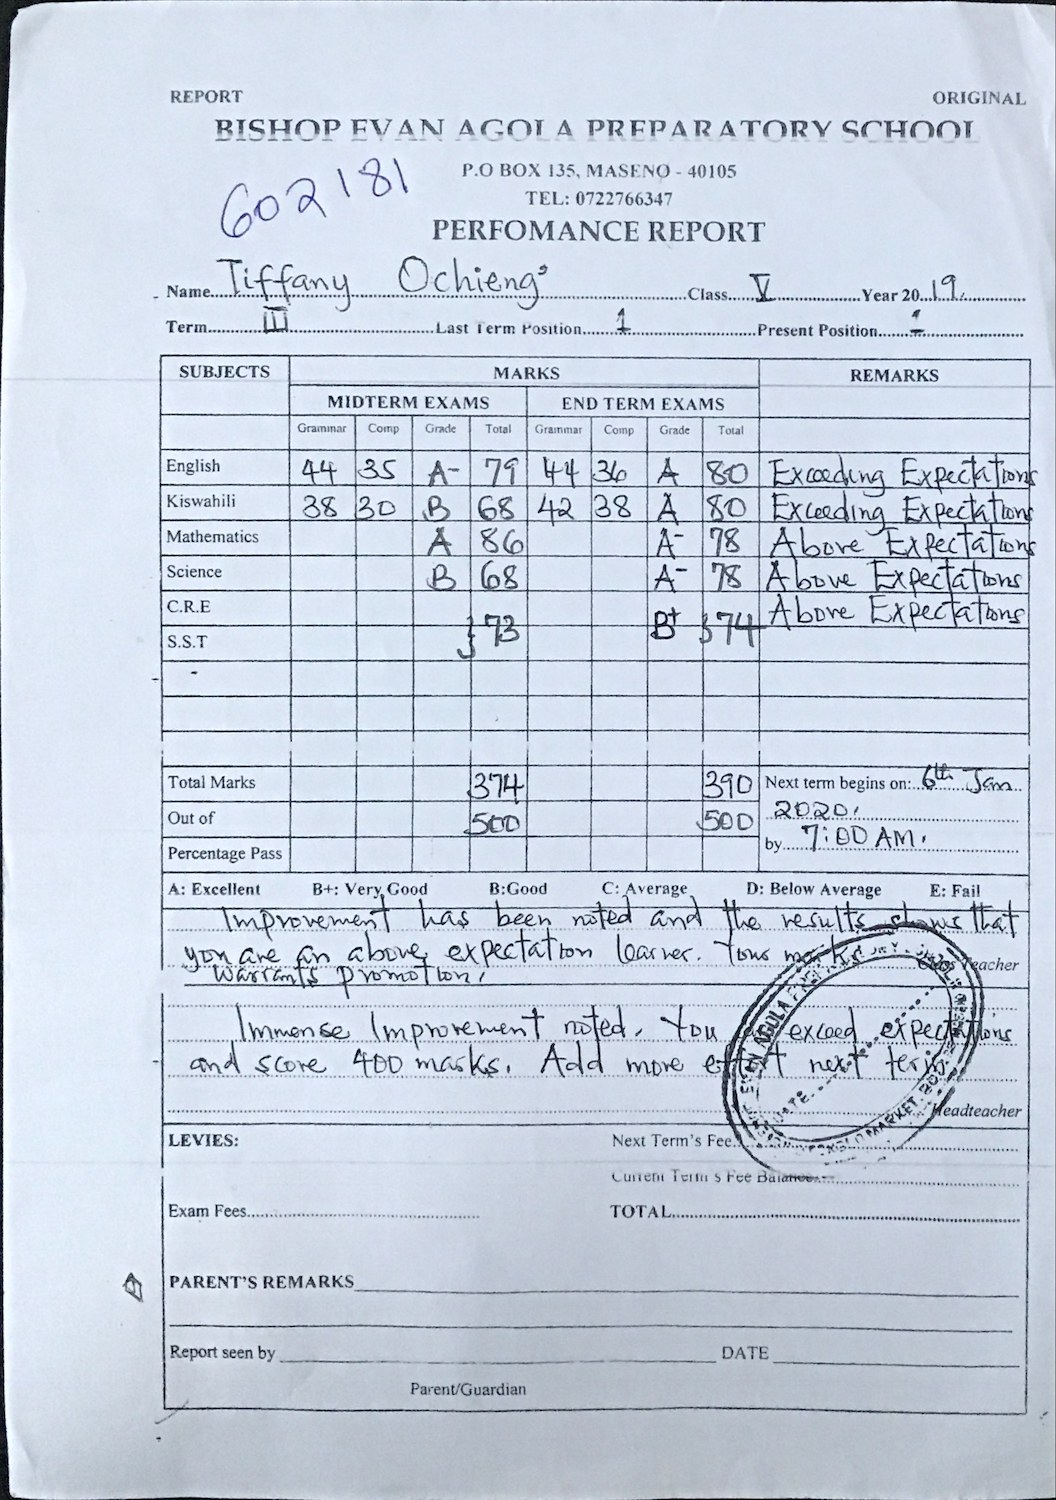 REPORT ORIGINAL
BISHOP EVAN AGOLA PREPARATORY SCHOOL
P.O BOX 135, MASENO - 40105
602181
TEL: 0722766347
PERFOMANCE REPORT
Name Tiffany Ochieng' Class V Year 2019.
Term III Last Term Position 1 Present Position 1
SUBJECTS MARKS REMARKS
MIDTERM EXAMS END TERM EXAMS
Grammar Comp Grade Total Grammar Comp Grade Total
English 44 35 A- 79 44 36 A 80 Exceeding Expectations
Kiswahili 38 30 B 68 42 38 A 80 Exceeding Expectations
Mathematics A 86 A- 78 Above Expectations
Science B 68 A- 78 Above Expectations
C.R.E Above Expectations
} 73 B+ } 74
S.S.T
-
Total Marks 374 390 Next term begins on: 6th Jan
Out of 500 500 2020.
Percentage Pass by 7:00 AM.
A: Excellent B+: Very Good B:Good C: Average D: Below Average E: Fail
Improvement has been noted and the results shows that
you are an above expectation learner. Your marks Class Teacher
warrants promotion.
Immense Improvement noted. You exceed expectations
and score 400 marks. Add more effort next term.
Headteacher
EVAN AGOLA
DATE
MARKET
LEVIES: Next Term's Fee
Current Term's Fee Balance
Exam Fees TOTAL
PARENT'S REMARKS
Report seen by DATE
Parent/Guardian